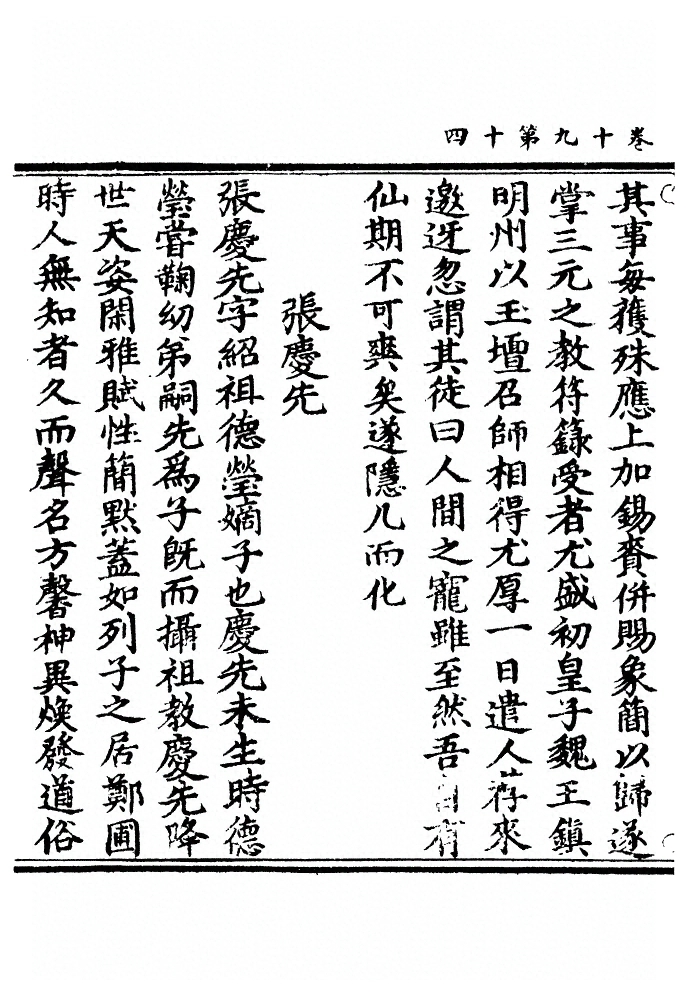 卷十九第十四
其事每獲殊應上加錫賚併賜象簡以歸遂
掌三元之教符籙受者尤盛初皇子魏王鎮
明州以玉壇召師相得尤厚一日遣人荐來
邀迓忽謂其徒曰人間之寵雖至然吾自有
仙期不可爽矣遂隱几而化
張慶先
張慶先字紹祖德瑩嫡子也慶先未生時德
瑩嘗鞠幼弟嗣先爲子旣而攝祖教慶先降
世天姿閑雅賦性簡默蓋如列子之居鄭圃
時人無知者久而聲名方馨神異煥發道俗